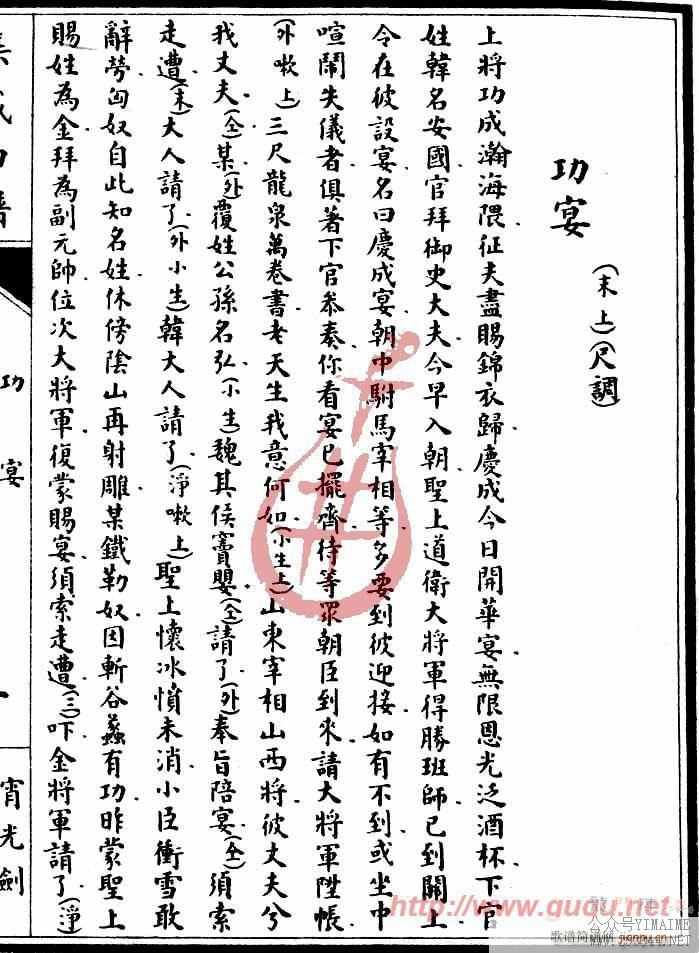 功宴
(末上)(尺調)
上將功成瀚海隈征夫盡賜錦衣歸慶成今日開華宴無限恩光泛酒杯下官
姓韓名安國官拜御史大夫今早入朝聖上道衛大將軍得勝班師已到關上
令在彼設宴名曰慶成宴朝中駙馬宰相等多要到彼迎接如有不到或坐中
喧鬧失儀者俱著下官叅奏你看宴已擺齊待等眾朝臣到來請大將軍陞帳
(外嗽上)三尺龍泉萬卷書老天生我意何如(小生上)山東宰相山西將彼丈夫兮
我丈夫(仝)某(外)覆姓公孫名弘(小生)魏其侯竇嬰(仝)請了(外)奉旨陪宴(仝)須索
走遭(末)大人請了(外小生)韓大人請了(淨嗽上)聖上懷冰憤未消小臣衝雪敢
辭勞匈奴自此知名姓休傍陰山再射雕某鐵勒奴因斬谷蠡有功昨蒙聖上
賜姓為金拜為副元帥位次大將軍復蒙賜宴須索走遭(三)吓金將軍請了(淨
功宴
一
宵光劍
http://www.guqu.net
公众号YIMAIME
歌谱简谱网